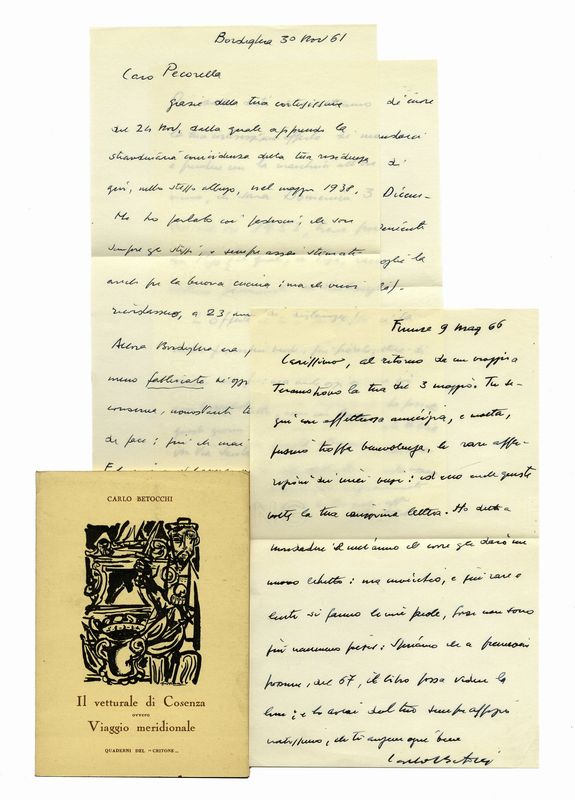 Bordighera 30 Nov 61
Caro Pecorella
grazie della tua cortesissima
del 24 Nov, dalla quale apprendo la
straordinaria coincidenza della tua residenza
qui, nello stesso albergo, nel maggio 1938.
Ne ho parlato coi padroni, che son
sempre gli stessi, e sempre assai stimati
anche per la buona cucina: ma chi vuoi
ricordasse, a 23 an
Allora Bordighera era
meno fabbricata di oggi
conserva, nonostante
di pace: più che mai
di cuore
mandarci
di
Dicem-
la
Firenze 9 mag 66
Carissimo, al ritorno da un viaggio a
Teramo trovo la tua del 3 maggio. Tu se-
gui con affettuosa amicizia, e molta,
troppa benevolenza, le rare appa-
rizioni dei miei versi: ed ecco anche questa
volta la tua carissima lettera. Ho detto a
Mondadori che
nuovo libretto: ma invecchio, e più rare e
lente si fanno le mie parole, forse non sono
più nemmeno poesie: Speriamo che a
del 67, il libro possa vedere la
luce; e lo avrai dal tuo sempre affezio-
natissimo, che ti augura ogni bene
Carlo Betocchi
CARLO BETOCCHI
Il vetturale di Cosenza
ovvero
Viaggio meridionale
QUADERNI DEL "CRITONE"